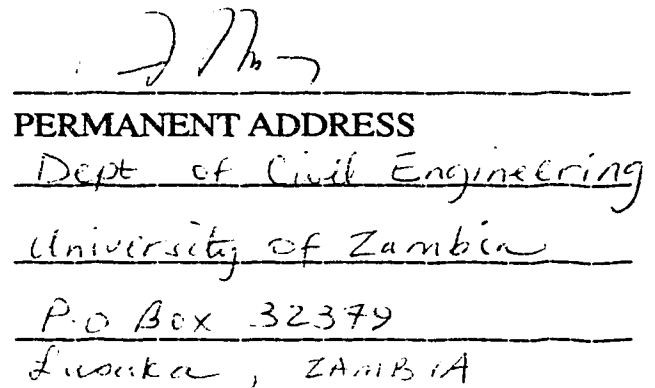 PERMANENT ADDRESS
Dept of Civil Engineering
University of Zambia
P.O Box 32379
Lusaka, ZAMBIA